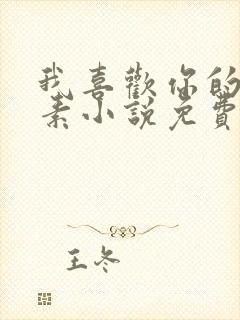 我喜歡你的
素小說免費
王冬